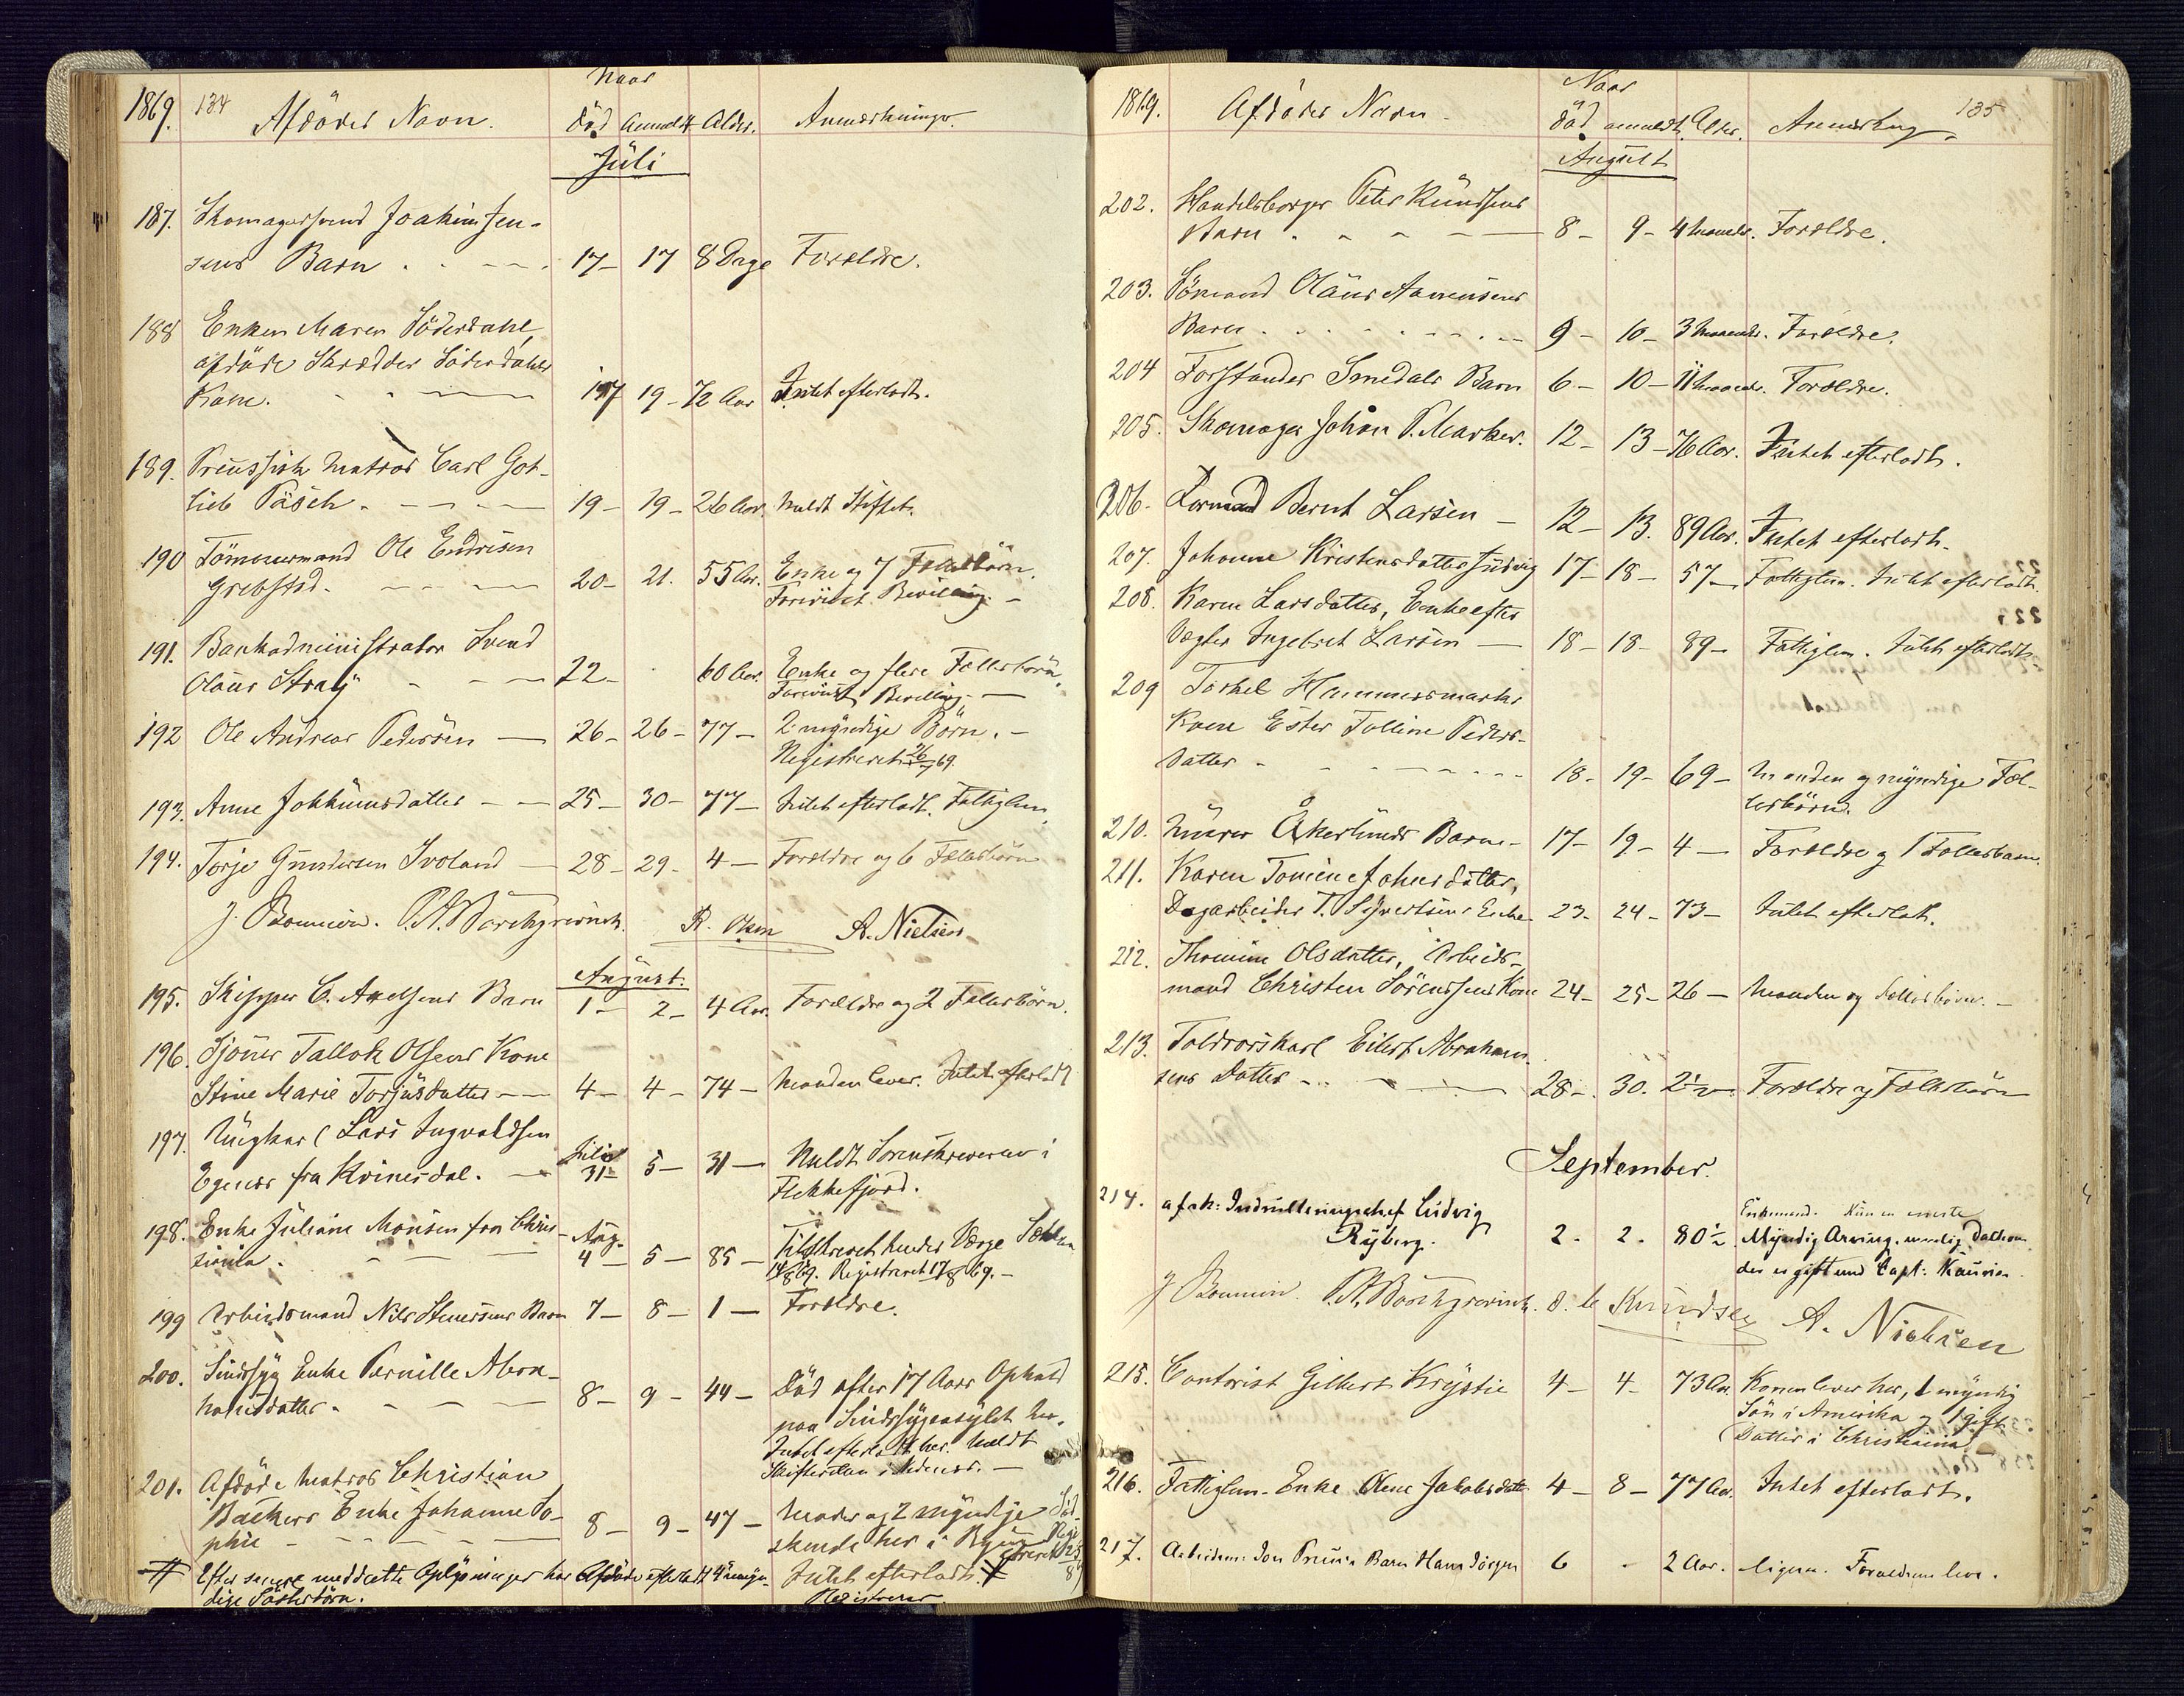 1869. 134 Afdödes Navn. Naar död anmeldt Alder. Anmærkninger.
Juli
187. Skomagersvend Joakim Jen-
sens Barn 17 - 17 8 Dage Forældre.
188 Enken Maren Söderdahl,
afdöde Skrædder Söderdahls
Kone. 17 19 - 72 Aar Intet efterladt.
189. Preussisk Matros Carl Got-
lieb Päsch. 19 - 19 - 26 Aar. Meldt Skiftet.
190 Tömmermand Ole Endresen
Grebstad. 20 - 21. 55 Aar. Enke og 7 Fællesbörn.
Forevist Bevilling. -
191. Bankadministrator Svend
Olaus Stray 22 - 60 Aar. Enke og flere Fællesbörn.
Forevist Bevilling. -
192 Ole Andreas Pedersen 26 - 26 - 77 - 2 myndige Börn. -
Registreret 26/7 69.
193. Anne Jokkumsdatter 25 - 30 - 77 - Intet efterladt. Fattiglem.
194. Torje Gundersen Ivoland 28 - 29 - 4 - Forældre og 6 Fællesbörn
P. A. Borchgrevink. R. Olsen A. Nielsen
August.
195. Skipper C. Axelsens Barn 1 - 2 - 4 Aar. Forældre og 2 Fællesbörn.
196. Sjouer Tallok Olsens Kone
Stine Marie Torjusdatter 4 - 4 - 74 - Manden lever. Intet efterladt
197. Ungkarl Lars Ingvaldsen Juli
Egenes fra Kvinesdal. 31 - 5 - 31 - Meldt Sorenskriveren i
Flekkefjord.
198. Enke Juliane Monsen fra Chris- Aug.
tiania. 4 - 5 - 85 - Tilskrevet hendes Værge
14/8 69. Registreret 17/8 69. -
199 Arbeidsmand Nils Steensens Barn 7 - 8 - 1 - Forældre.
200. Sindssyg Enke Pernille Abra-
hamsdatter. 8 - 9 - 44 - Död efter 17 Aars Ophold
paa Sindssygeasylet her.
Intet efterladt her. Meldt
Skifteretten i Nedenes. -
201. Afdöde Matros Christian
Backers Enke Johanne So-
phie 8 - 9 - 47 - Moder og 2 myndige Sød-
skende her i Byen
Intet efterladt. #
# Efter senere meddeelte Oplysninger har Afdöde efterladt 4 umyn-
dige Søsterbörn. Registreret
1869. Afdödes Navn. Naar död anmeldt. Alder. Anmærkning 135
August
202. Handelsborger Peter Knudsens
Barn 8 - 9 - 4 Maaneder. Forældre.
203. Sömand Olaus Aanensens
Barn 9 - 10 - 3 Maaneder. Forældre.
204 Forstander Smedals Barn 6 - 10 - 11 Maaneder. Forældre.
205. Skomager Johan P. Marker. 12 - 13 - 76 Aar. Intet efterladt.
206. Formand Bernt Larsen - 12 - 13. 89 Aar. Intet efterladt.
207. Johanne Kristensdatter Judvig 17 - 18 - 57 - Fattiglem. Intet efterladt.
208. Karen Larsdatter, Enke efter
Vægter Ingebret Larsen 18 - 18 - 89 - Fattiglem. Intet efterladt.
209 Torkel Hammersmarks
Kone Ester Talline Peders-
datter 18 - 19 - 69 - Manden og myndige Fæl-
lesbörn.
210. Murer Åkerlunds Barn 17 - 19 - 4 - Forældre og 1 Fællesbarn.
211. Karen Tomine Johnsdatter,
Dagarbeider T. Syvertsens Enke 23 - 24 - 73 - Intet efterladt.
212. Thomine Olsdatter, Arbeids-
mand Christen Sörenssens Kone 24 - 25 - 26 - Manden og Fællesbörn. -
213. Toldroerskarl Eilert Abraham-
sens Datter 28 - 30. 2 1/2 Forældre og Fællesbörn
September.
214. afsk: Indrulleringschef Ludvig
Ryberg. 2. 2. 80 1/2 Enkemand. Kun en eneste
Myndig Arving, nemlig Datteren
der er gift med Capt:
P. A. Borchgrevink. O. C. Knudsen A. Nielsen
215. Contorist Gilbert Krystie 4 - 4 - 73 Aar. Konen lever her, 1 myndig
Sön i Amerika og 1 gift
Datter i Christiania. -
216. Fattiglem Enke Olene Jakobsdatter 4 - 8 - 77 Aar. Intet efterladt.
217. Arbeidsm: Jon Barn Hans Jörgen 6 - 2 Aar. ligesaa. Forældrene leve.